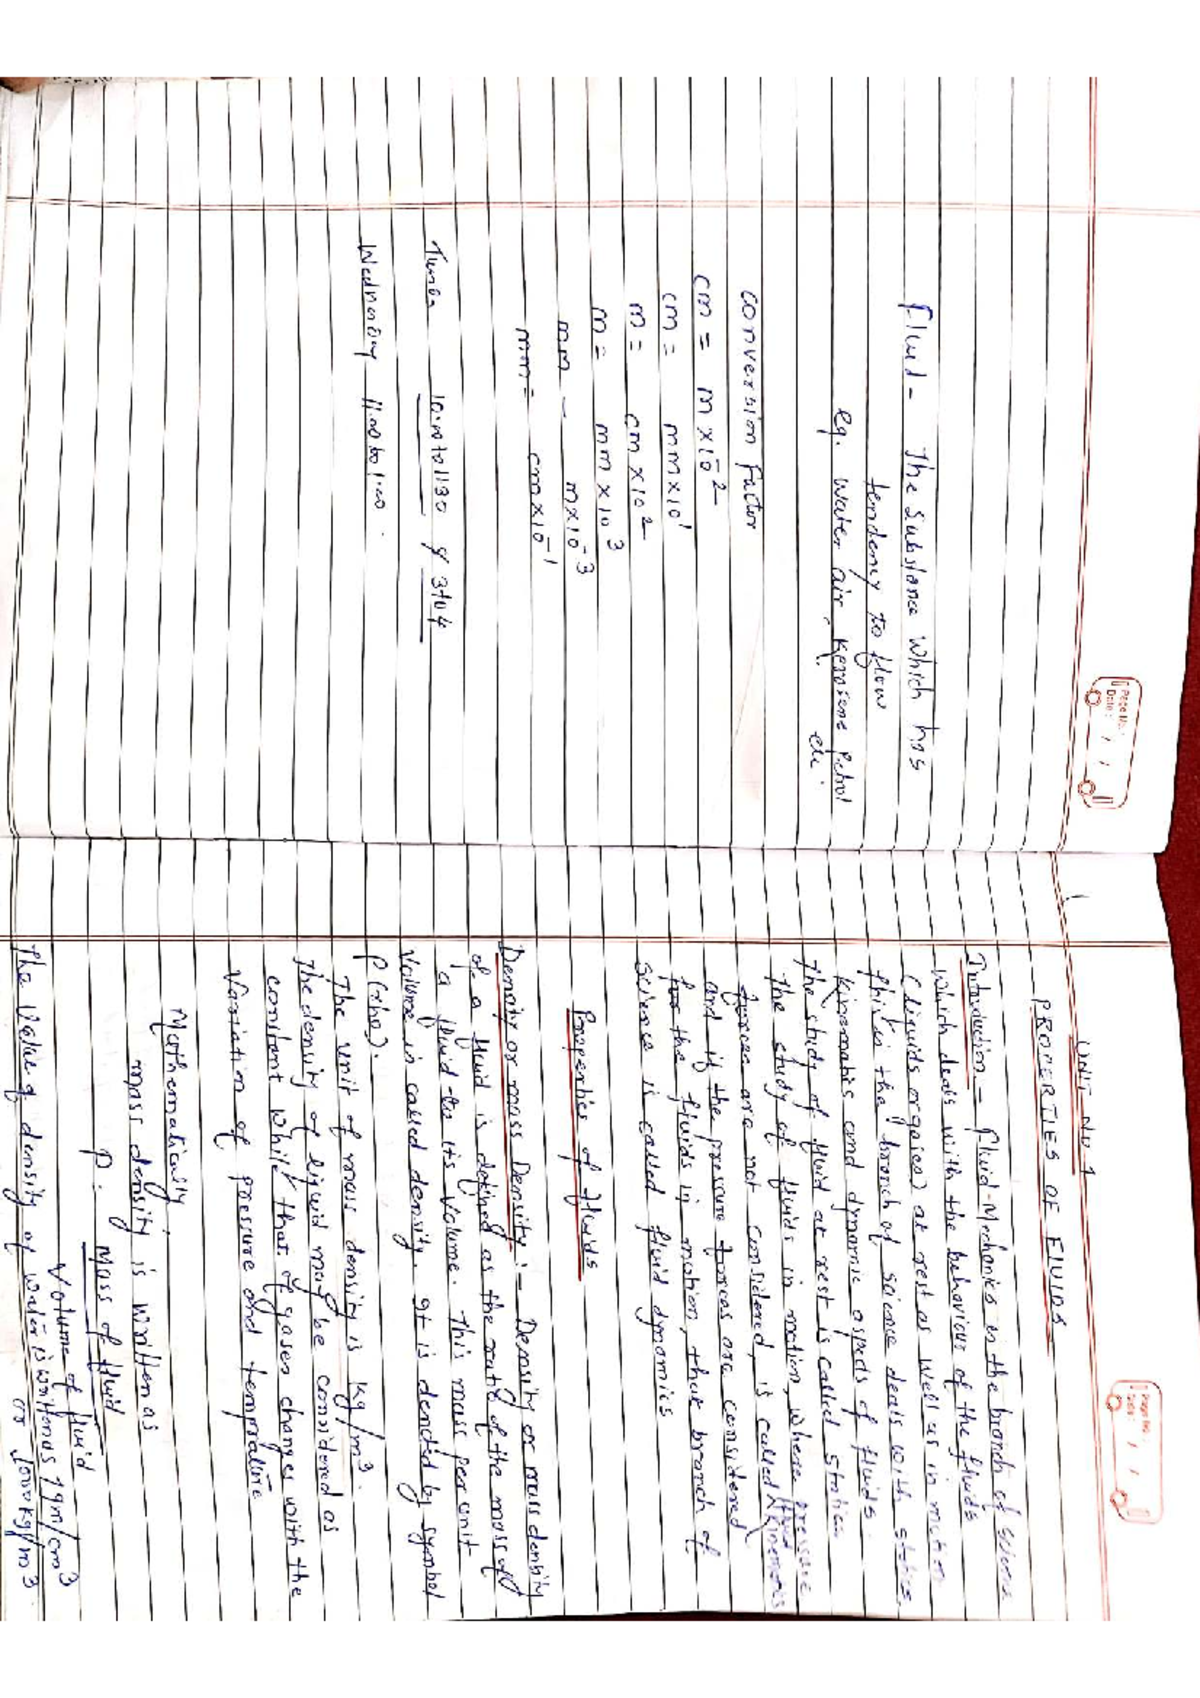 Page No.:
Date: / /
fluid - The substance which has
tendency to flow
eg. water, air, kerosene petrol
etc.
conversion factor
cm = m x 10-2
cm = mm x 10'
m = cm x 10 2
m = mm x 10 3
mm - m x 10-3
mm = cm x 10-1
10.00 to 11.30 & 3 to 4
Wednesday 11.00 to 1.00.
Page No.:
Date: / /
1
UNIT NO 1
PROPERTIES OF FLUIDS
Introduction - Fluid-Mechanics is the branch of science
which deals with the behaviour of the fluids
(liquids or gases) at rest as well as in motion
this is the branch of science deals with statics,
kinematics and dynamic aspects of fluids.
The study of fluid at rest is called statics
The study of fluids in motion, where pressure
forces are not considered, is called fluid kinematics
and if the pressure forces are considered
for the fluids in motion, that branch of
science is called fluid dynamics
Properties of fluids
Density or mass Density :- Density or mass density
of a fluid is defined as the ratio of the mass of
a fluid to its volume. This mass per unit
volume is called density. It is denoted by symbol
ρ (rho).
The unit of mass density is kg/m3.
The density of liquid may be considered as
constant while that of gases changes with the
variation of pressure and temprature
Mathematically,
mass density is written as
ρ = Mass of fluid
Volume of fluid
The Value of density of water is 1 gm/cm3
or 1000 kg/m3.